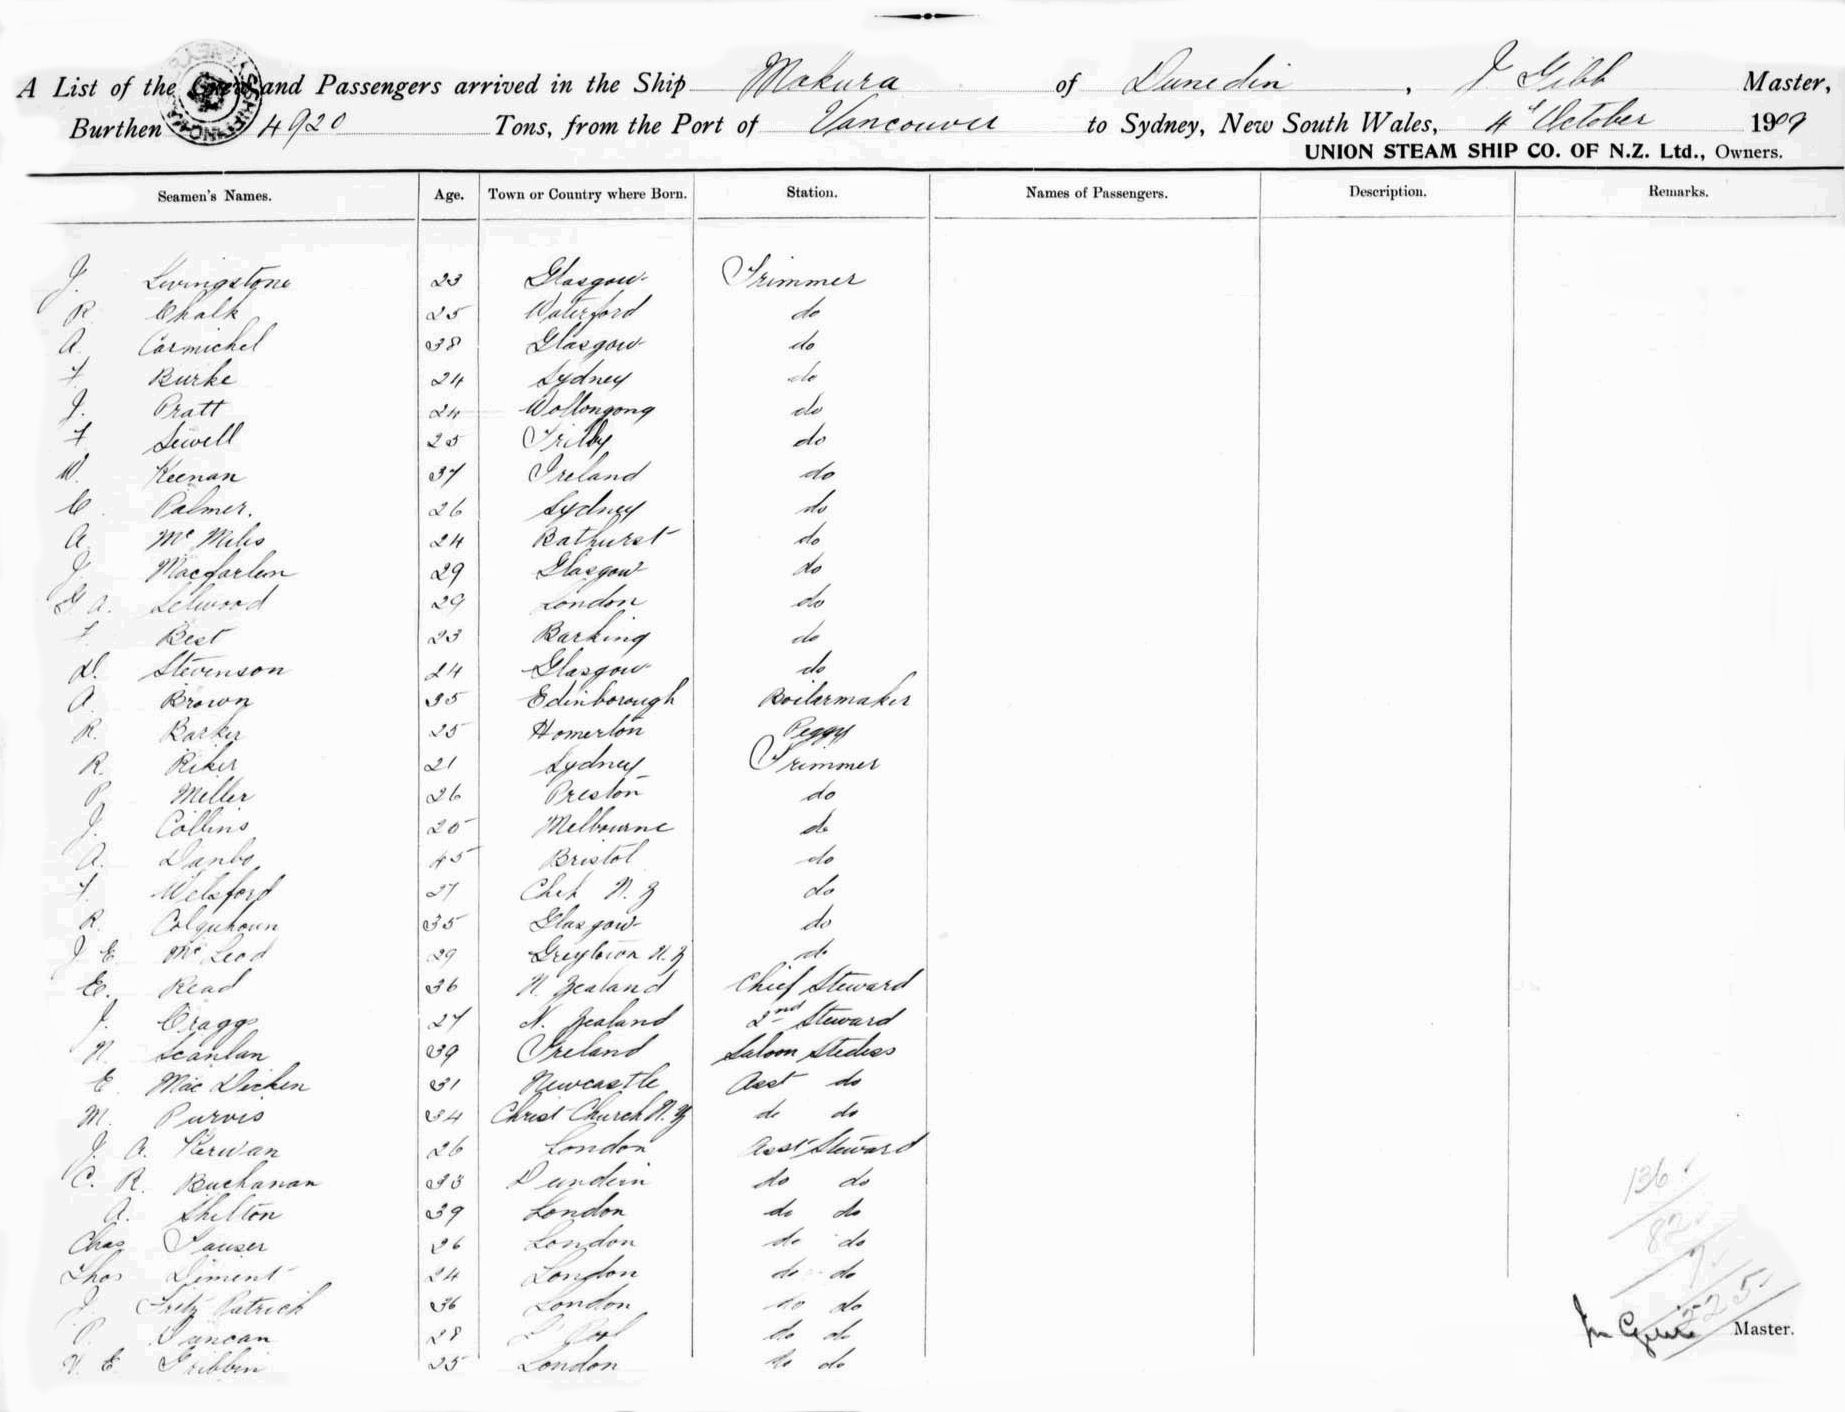 A List of the Crew and Passengers arrived in the Ship Makura of Dunedin, J Gibb Master,
Burthen 4920 Tons, from the Port of Vancouver to Sydney, New South Wales, 4th October 1909
UNION STEAM SHIP CO. OF N.Z. Ltd., Owners.
Seamen's Names. Age. Town or Country where Born. Station. Names of Passengers. Description. Remarks.
J. Livingstone 23 Glasgow Trimmer
R Chalk 25 Waterford do
A. Carmichel 38 Glasgow do
F Burke 24 Sydney do
J. Pratt 24 Wollongong do
F Sewell 25 do
W. Keenan 37 Ireland do
C. Palmer. 26 Sydney do
A. Mc 24 Bathurst do
J. Macfarlen 29 Glasgow do
G A. Selwood 29 London do
F. Best 23 Barking do
D. Stevenson 24 Glasgow do
A. Brown 35 Edinborough Boilermaker
R. Barker 25 Homerton Peggy
R. Riker 21 Sydney Trimmer
P. Miller 26 Preston do
J. Collins 25 Melbourne do
A. 45 Bristol do
F. Welsford 27 Chch N. Z do
R. Colquhoun 35 Glasgow do
J E Mc Leod 29 Greytown N. Z do
E. Read 36 N. Zealand Chief Steward
J. Craggs 27 N. Zealand 2nd Steward
N. Scanlan 39 Ireland Saloon Stedess
E. Mac Dicken 31 Newcastle Asst do
M. Purvis 34 Christ Church N. Z do do
J. A. Kerwan 26 London Asst Steward
C. R. Buchanan 33 Dundein do do
A. Shelton 39 London do do
Chas 26 London do do
Thos Diment 24 London do do
J. Fritz Patrick 36 London do do
P. Duncan 28 L Pool do do
V. E Gribbin 25 London do do
136
82
7
225
Master.